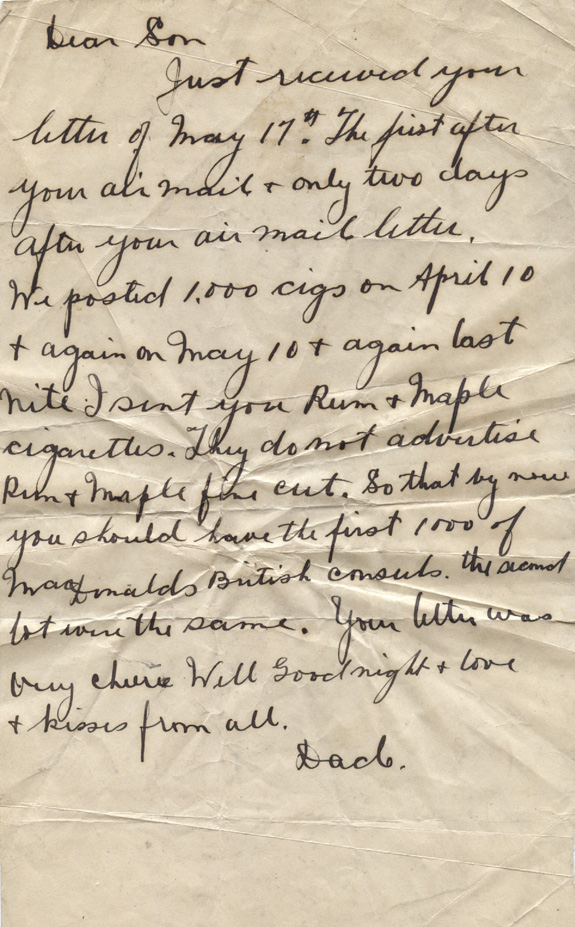 Dear Son
Just received your
letter of May 17th. The first after
your air mail + only two days
after your air mail letter.
We posted 1,000 cigs on April 10
+ again on May 10 + again last
nite I sent you Rum + Maple
cigarettes. They do not advertise
Rum + Maple fine cut. So that by now
you should have the first 1000 of
MacDonalds British consuls. the second
lot were the same. Your letter was
very Well Good night + love
+ kisses from all.
Dad.